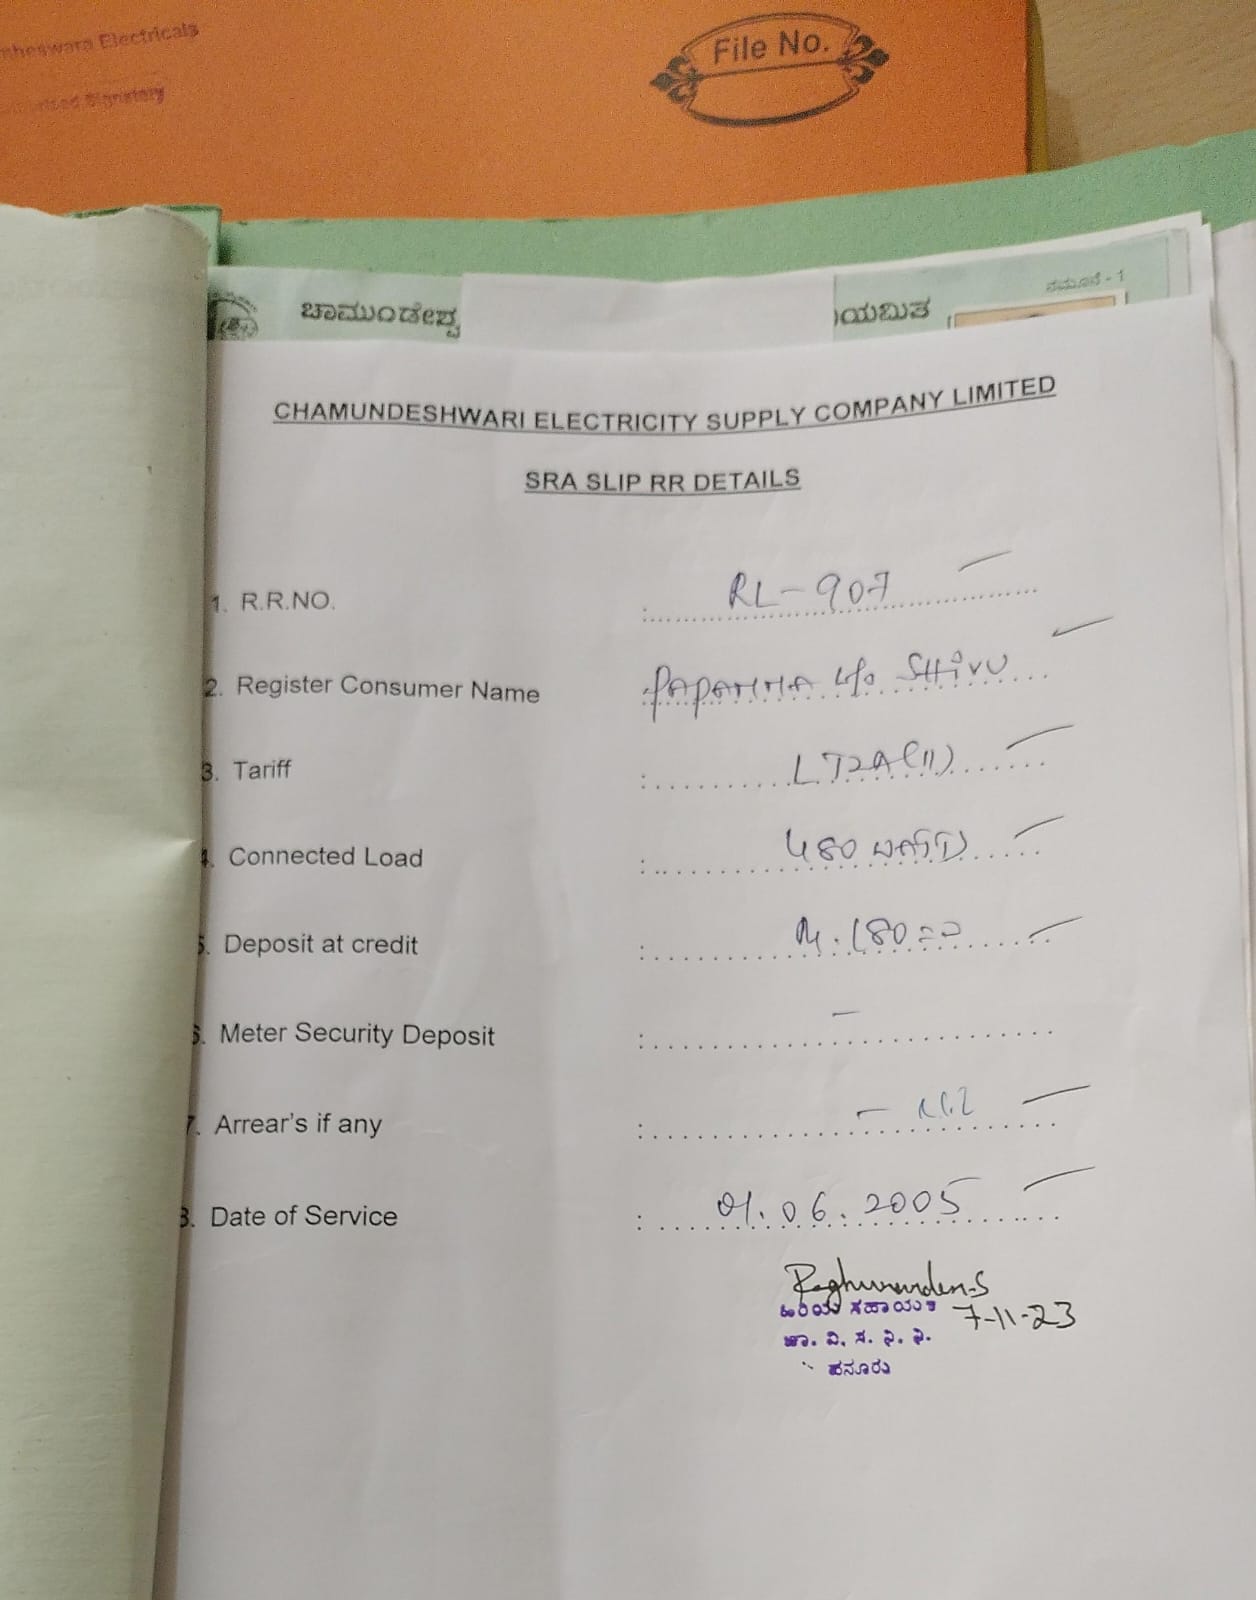 Electricals
File No.
ನಮೂನೆ - 1
ಚಾಮುಂಡೇಶ್ವ
ಯಮಿತ
CHAMUNDESHWARI ELECTRICITY SUPPLY COMPANY LIMITED
SRA SLIP RR DETAILS
1. R.R.NO. : RL-907
2. Register Consumer Name : PAPAMMA W/o SHIVU
3. Tariff : LT2A(II)
4. Connected Load : 480 WATTS
5. Deposit at credit : 180=00
6. Meter Security Deposit : –
7. Arrear's if any : – Nil
8. Date of Service : 01.06.2005
ಹಿರಿಯ ಸಹಾಯಕ 7-11-23
ಚಾ. ವಿ. ಸ. ನಿ. ನಿ.
ಹನೂರು